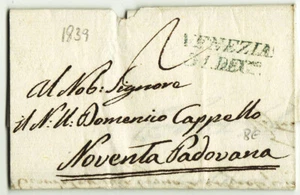 1839
VENEZIA
31 DEC.
Al Nob: Signore
il N. U. Domenico Cappello
Noventa Padovana